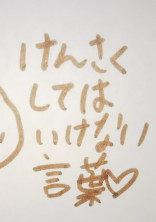 けんさく
しては
いけない
言葉♡